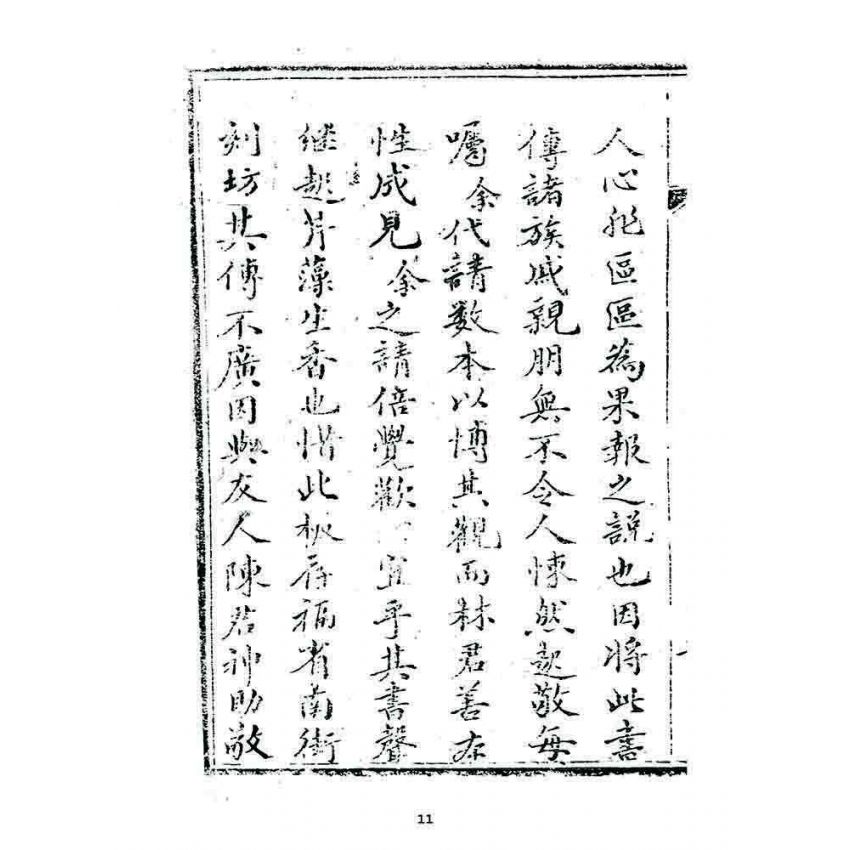 人心非區區為果報之説也因將此書
傳諸族戚親朋無不令人悚然起敬每
囑余代請数本以愽其觀而林君善在
性成見余之請倍覺歡宜乎其書聲
继起芹藻生香也惜此板存福省南街
刻坊其傳不廣因與友人陳君神助敬
11